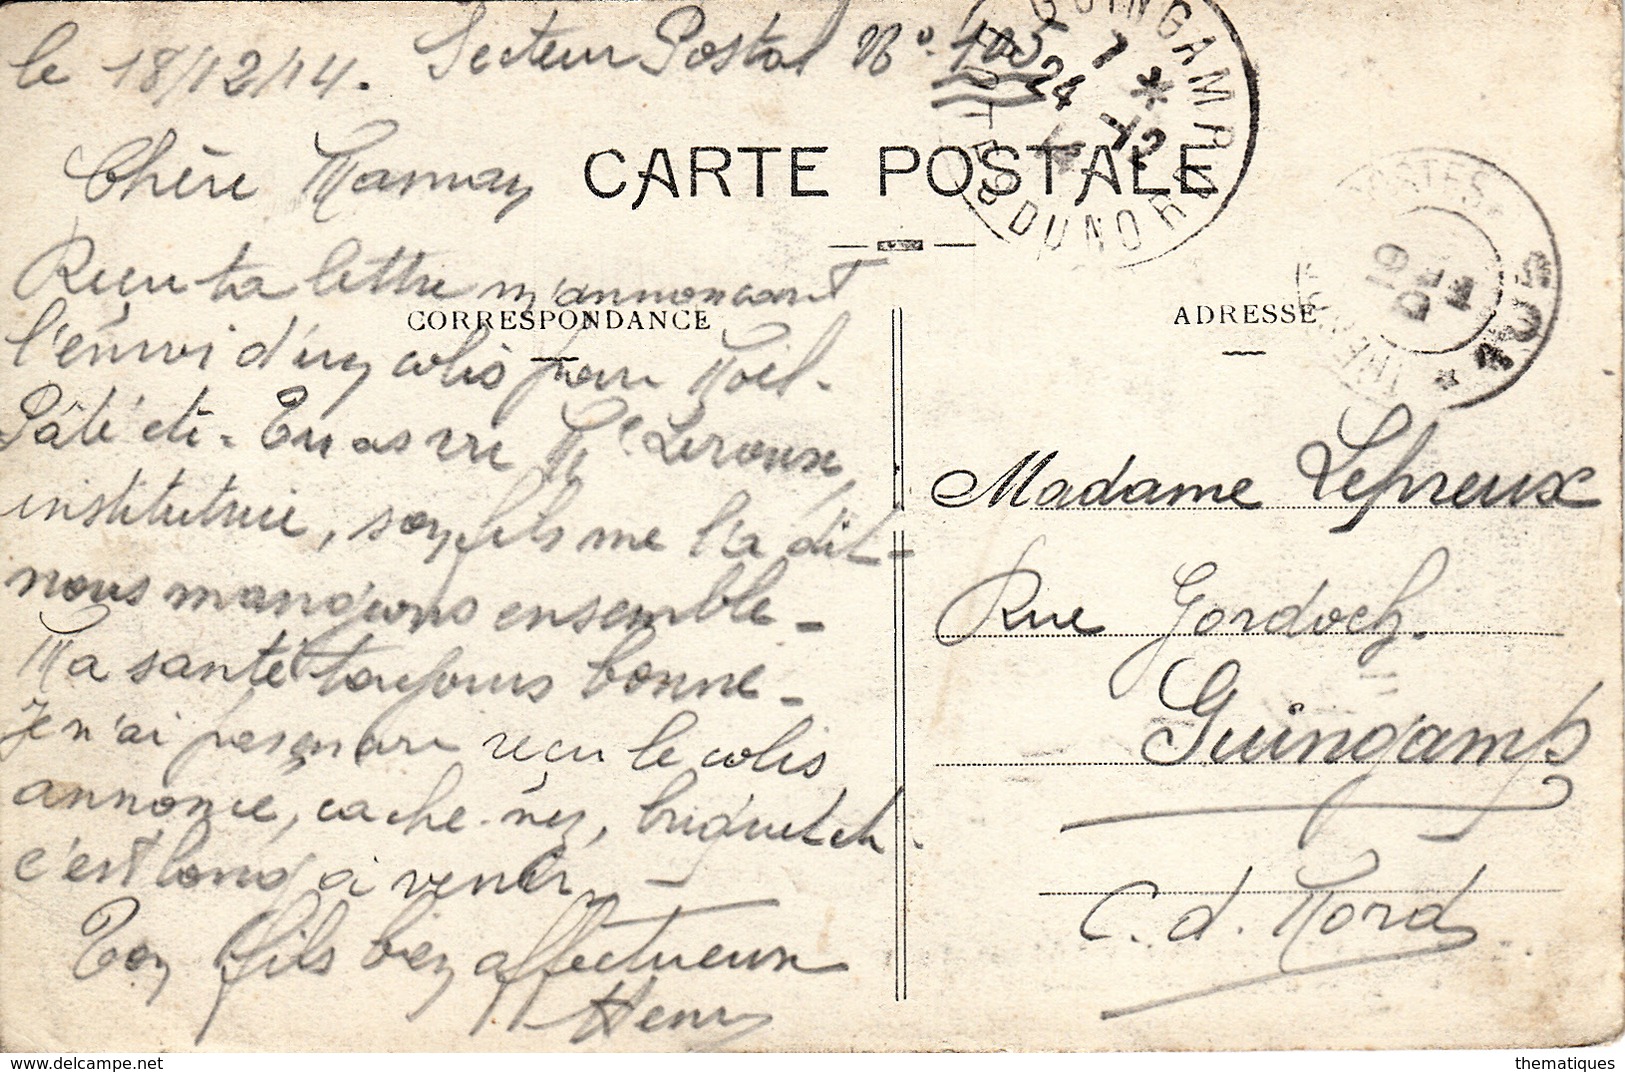 le 18/12/14. Secteur Postal No. 105
Chère Maman
CARTE POSTALE
Reçu ta lettre m'annoncant
CORRESPONDANCE
l'envoi d'un colis pour Noël.
Pâté etc. Tu as vu Me Leroux,
institutrice, son fils me l'a dit -
nous mangeons ensemble -
Ma santé toujours bonne -
Je n'ai pas encore reçu le colis
annoncé, cache-nez, briquet etc.
c'est long à venir -
Ton fils bien affectueux
Henri
ADRESSE
Madame Lepreux
Rue Gordoch.
Guingamp
C. d. Nord
GUINGAMP
7 *
24 12
COTES DU NORD
POSTES
19 DEC 14
* 105 *
thematiques